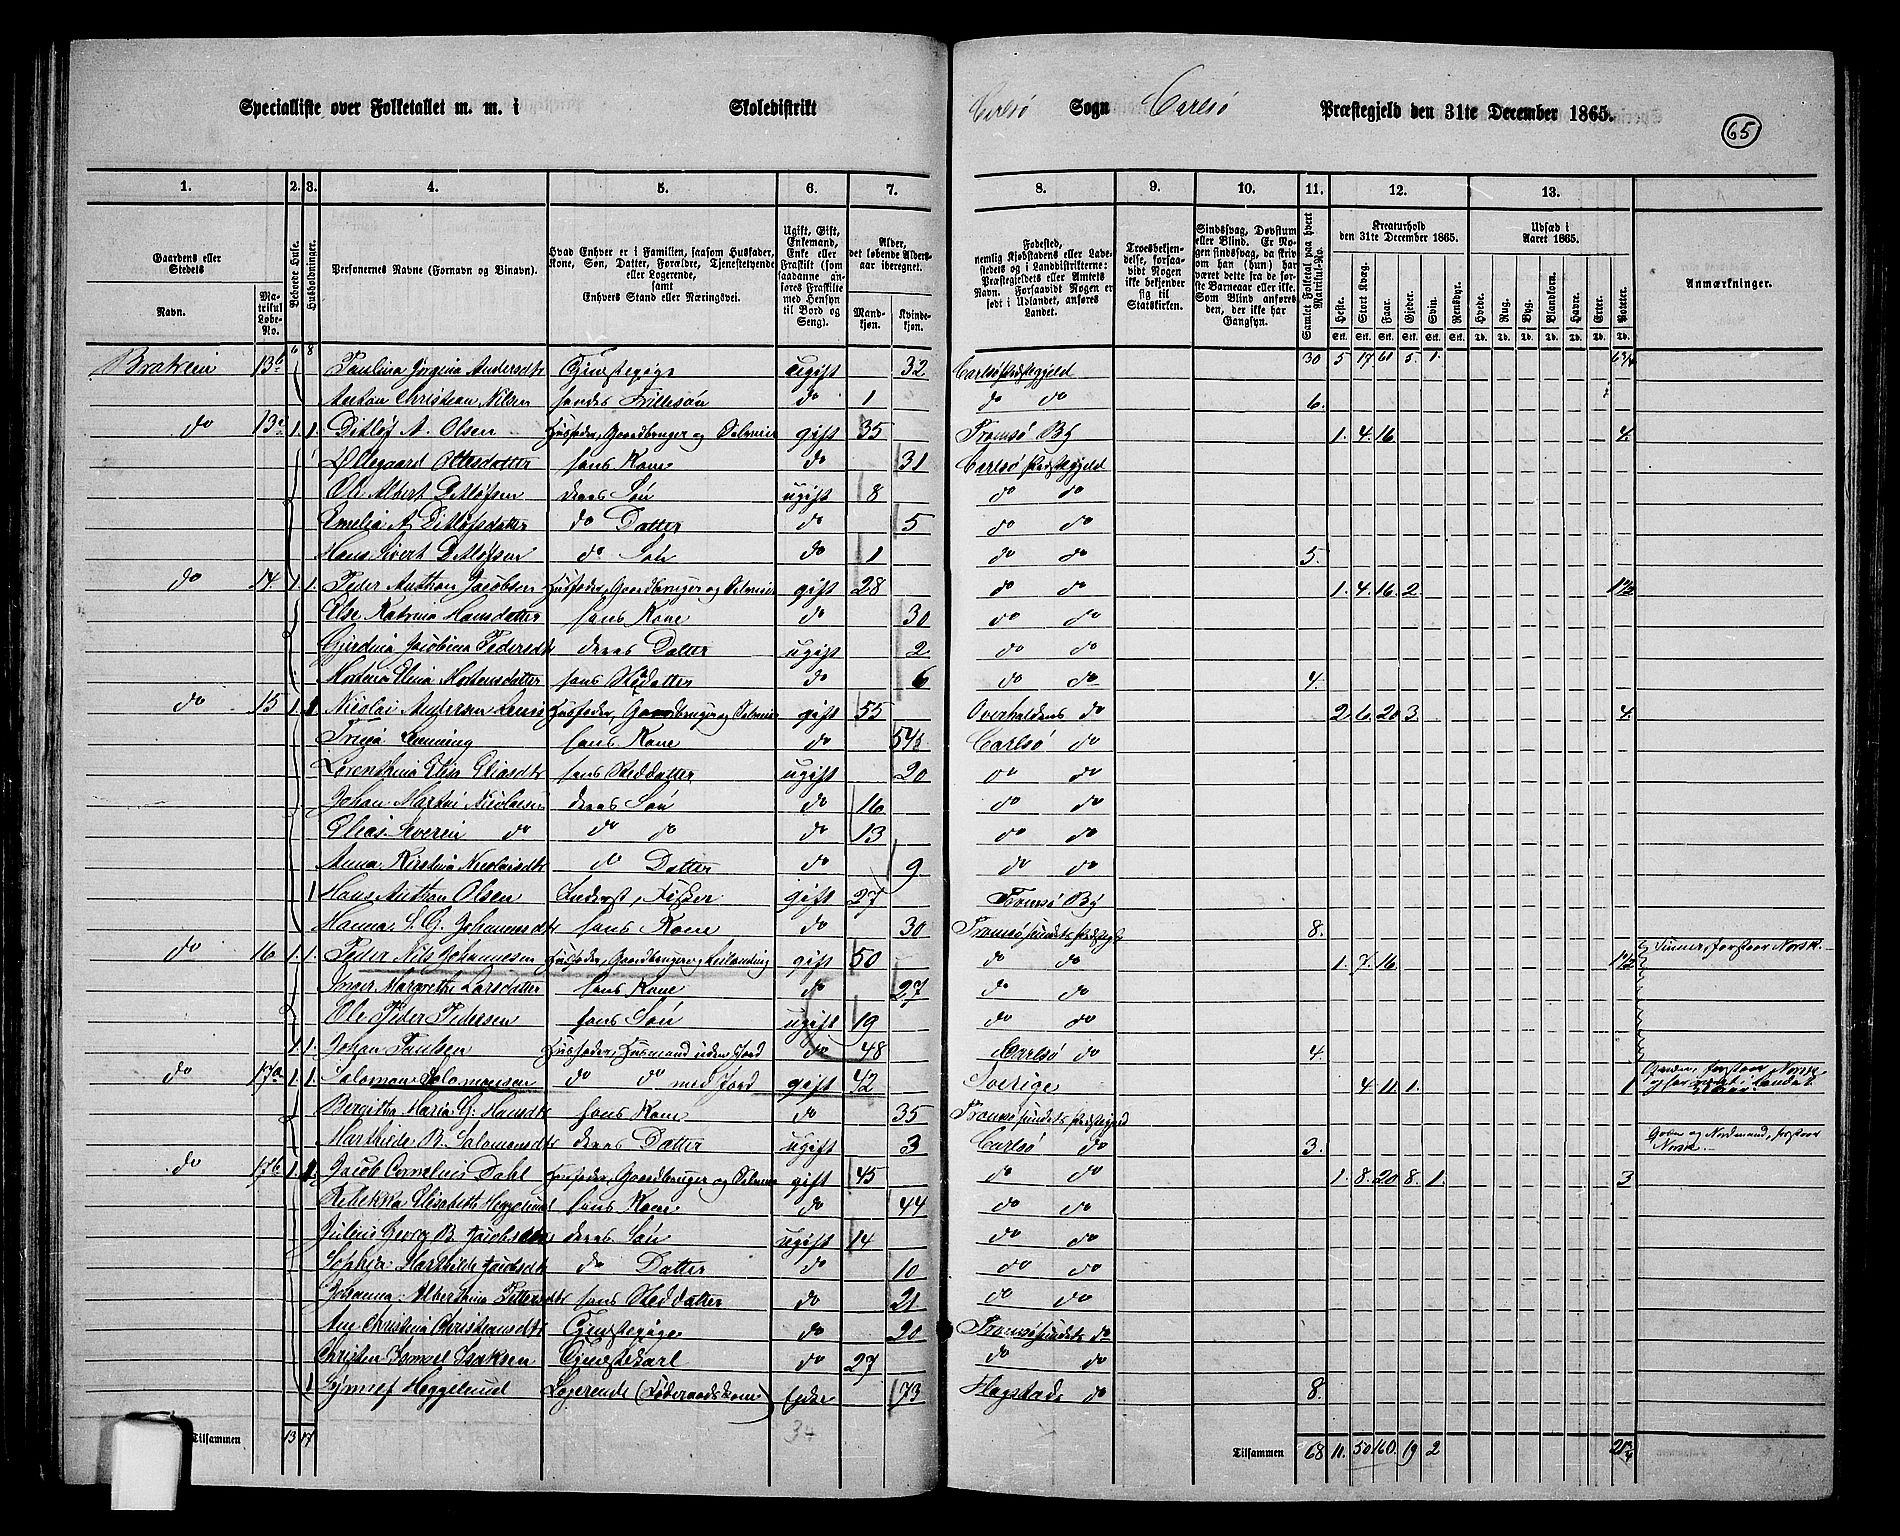 Specialliste over Folketallet m. m. i Skoledistrikt Carlsø Sogn Carlsø Præstegjeld den 31te December 1865.
65
1. 2. 3. 4. 5. 6. 7. 8. 9. 10. 11. 12. 13.
Gaardens eller Stedets
Navn.
Matrikul Løbe-No.
Beboede Huse.
Husholdninger.
Personernes Navne (Fornavn og Vinavn).
Hvad Enhver er i Familien, saasom Husfader, Kone, Søn, Datter, Forældre, Tjenestetyende eller Logerende, samt Enhvers Stand eller Næringsvei.
Ugift, Gift, Enkemand, Enke eller Fraskilt (som saadanne anføres Fraskilte med Hensyn til Bord og Seng).
Alder, det løbende Aldersaar iberegnet.
Mandkjøn.
Kvindekjøn.
Fødested, nemlig Kjøbstadens eller Ladestedets og i Landdistrikterne: Præstegjeldets eller Amtets Navn. Forsaavidt Nogen er født i Udlandet, anføres Landet.
Troesbekjendelse, forsaavidt Nogen ikke bekjender sig til Statskirken.
Sindssvag, Døvstum eller Blind. Er Nogen sindssvag, da skriv om han (hun) har været dette fra de første Barneaar eller ikke. Som Blind anføres den, der ikke har Gangsyn.
Samlet Folketal paa hvert Matrikul-No.
Kreaturhold den 31te December 1865.
Heste. Stort Kvæg. Faar. Gjeder. Svin. Rensdyr.
Udsæd i Aaret 1865.
Hvede. Rug. Byg. Blandkorn. Havre. Erter. Poteter.
Anmærkninger.
13b 6 8 Paulina Jørgina Andersdtr Tjenestepige ugift 32 Carlsø Præstegjeld 30 5 17 61 5 1
Anton Christian Nilsen hendes Frillesøn do 1 do do 6.
do 13c 1. 1. Ditløf A. Olsen Husfader, Gaardbruger og Selveier gift 35 Tromsø By 1. 4. 16 4.
Ottesdatter hans Kone do 31 Carlsø Præstegjeld
Ole Albert Ditløfsen deres Søn ugift 8 do do
Emelia A. Ditløfsdatter do Datter do 5 do do
Hans Sivert Ditløfsen do Søn do 1 do do 5.
do 14. 1. 1. Peder Anthon Jacobsen Husfader, Gaardbruger og Selveier gift 28 do do 1. 4. 16 2 1 1/2
Else Katrina Hansdatter hans Kone do 30 do do
Jacobina Pedersdtr deres Datter ugift 2 do do
Mortena Elena Mortensdatter hans Steddatter do 6 do do 4.
do 15 1. 1 Nicolai Andersen Husfader, Gaardbruger og Selveier gift 55 Overhaldens do 2 6 20 3 4.
hans Kone do Carlsø do
Lorenthina Elise Eliasdtr hans Steddatter ugift 20 do do
Johan Martin Nicolaisen deres Søn do 16 do do
Elias do do do do 13 do do
Anna Kirstina Nicolaisdtr do Datter do 9 do do
1 Hans Anthon Olsen Inderst, Fisker gift 27 Tromsø By
Hanna S. G. Johannesdtr hans Kone do 30 Tromsøsundets Præstegj. 8.
do 16 1. 1. Peder Nils Johannesen gift 50 do do 1. 7. 16 1 1/2 Finner, forstaar Norsk.
Inger Margrethe Larsdatter hans Kone do 27 do do
Ole Peder Pedersen hans Søn ugift 19 do do
1. 1. Johan Paulsen Husfader, Husmand uden Jord do 48 Carlsø do 4.
do 17a 1. 1. Salomon Salomonsen do do med Jord gift 42 Sverige 4. 11. 1. 1
Bergitta Maria G. Hansdtr hans Kone do 35 Tromsøsundets Præstegjeld
Mathilde B. Salomonsdtr deres Datter ugift 3 Carlsø do 3.
og Nordmand, forstaar Norsk.
do 17b 1. 1. Jacob Cornelius Dahl Husfader, Gaardbruger og Selveier gift 45 do do 1. 8. 20 8. 1. 3
Rebekka Elisabeth Heggelund hans Kone do 44 do do
Julius Georg B. Jacobsen deres Søn ugift 14 do do
Sophie Mathilde Jacobsdtr do Datter do 10 do do
Johanna Alberthina Pettersdtr hans Steddatter do 21 do do
Ane Christina Christiansdtr Tjenestepige do 20 Tromsøsundets do
Christen Isaksen Tjenestekarl do 27 do do
1 Heggelund Logerende (Føderaadskone) 73 do 8.
Tilsammen 13 17 34 Tilsammen 68 11. 50 160. 19 2